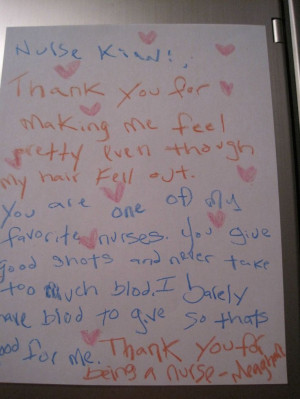 Nurse Kim!,
Thank you for
making me feel
pretty even though
my hair fell out.
You are one of my
favorite nurses. You give
good shots and never take
too much blod. I barely
have blod to give so thats
ood for me. Thank you for
being a nurse - Meaghan